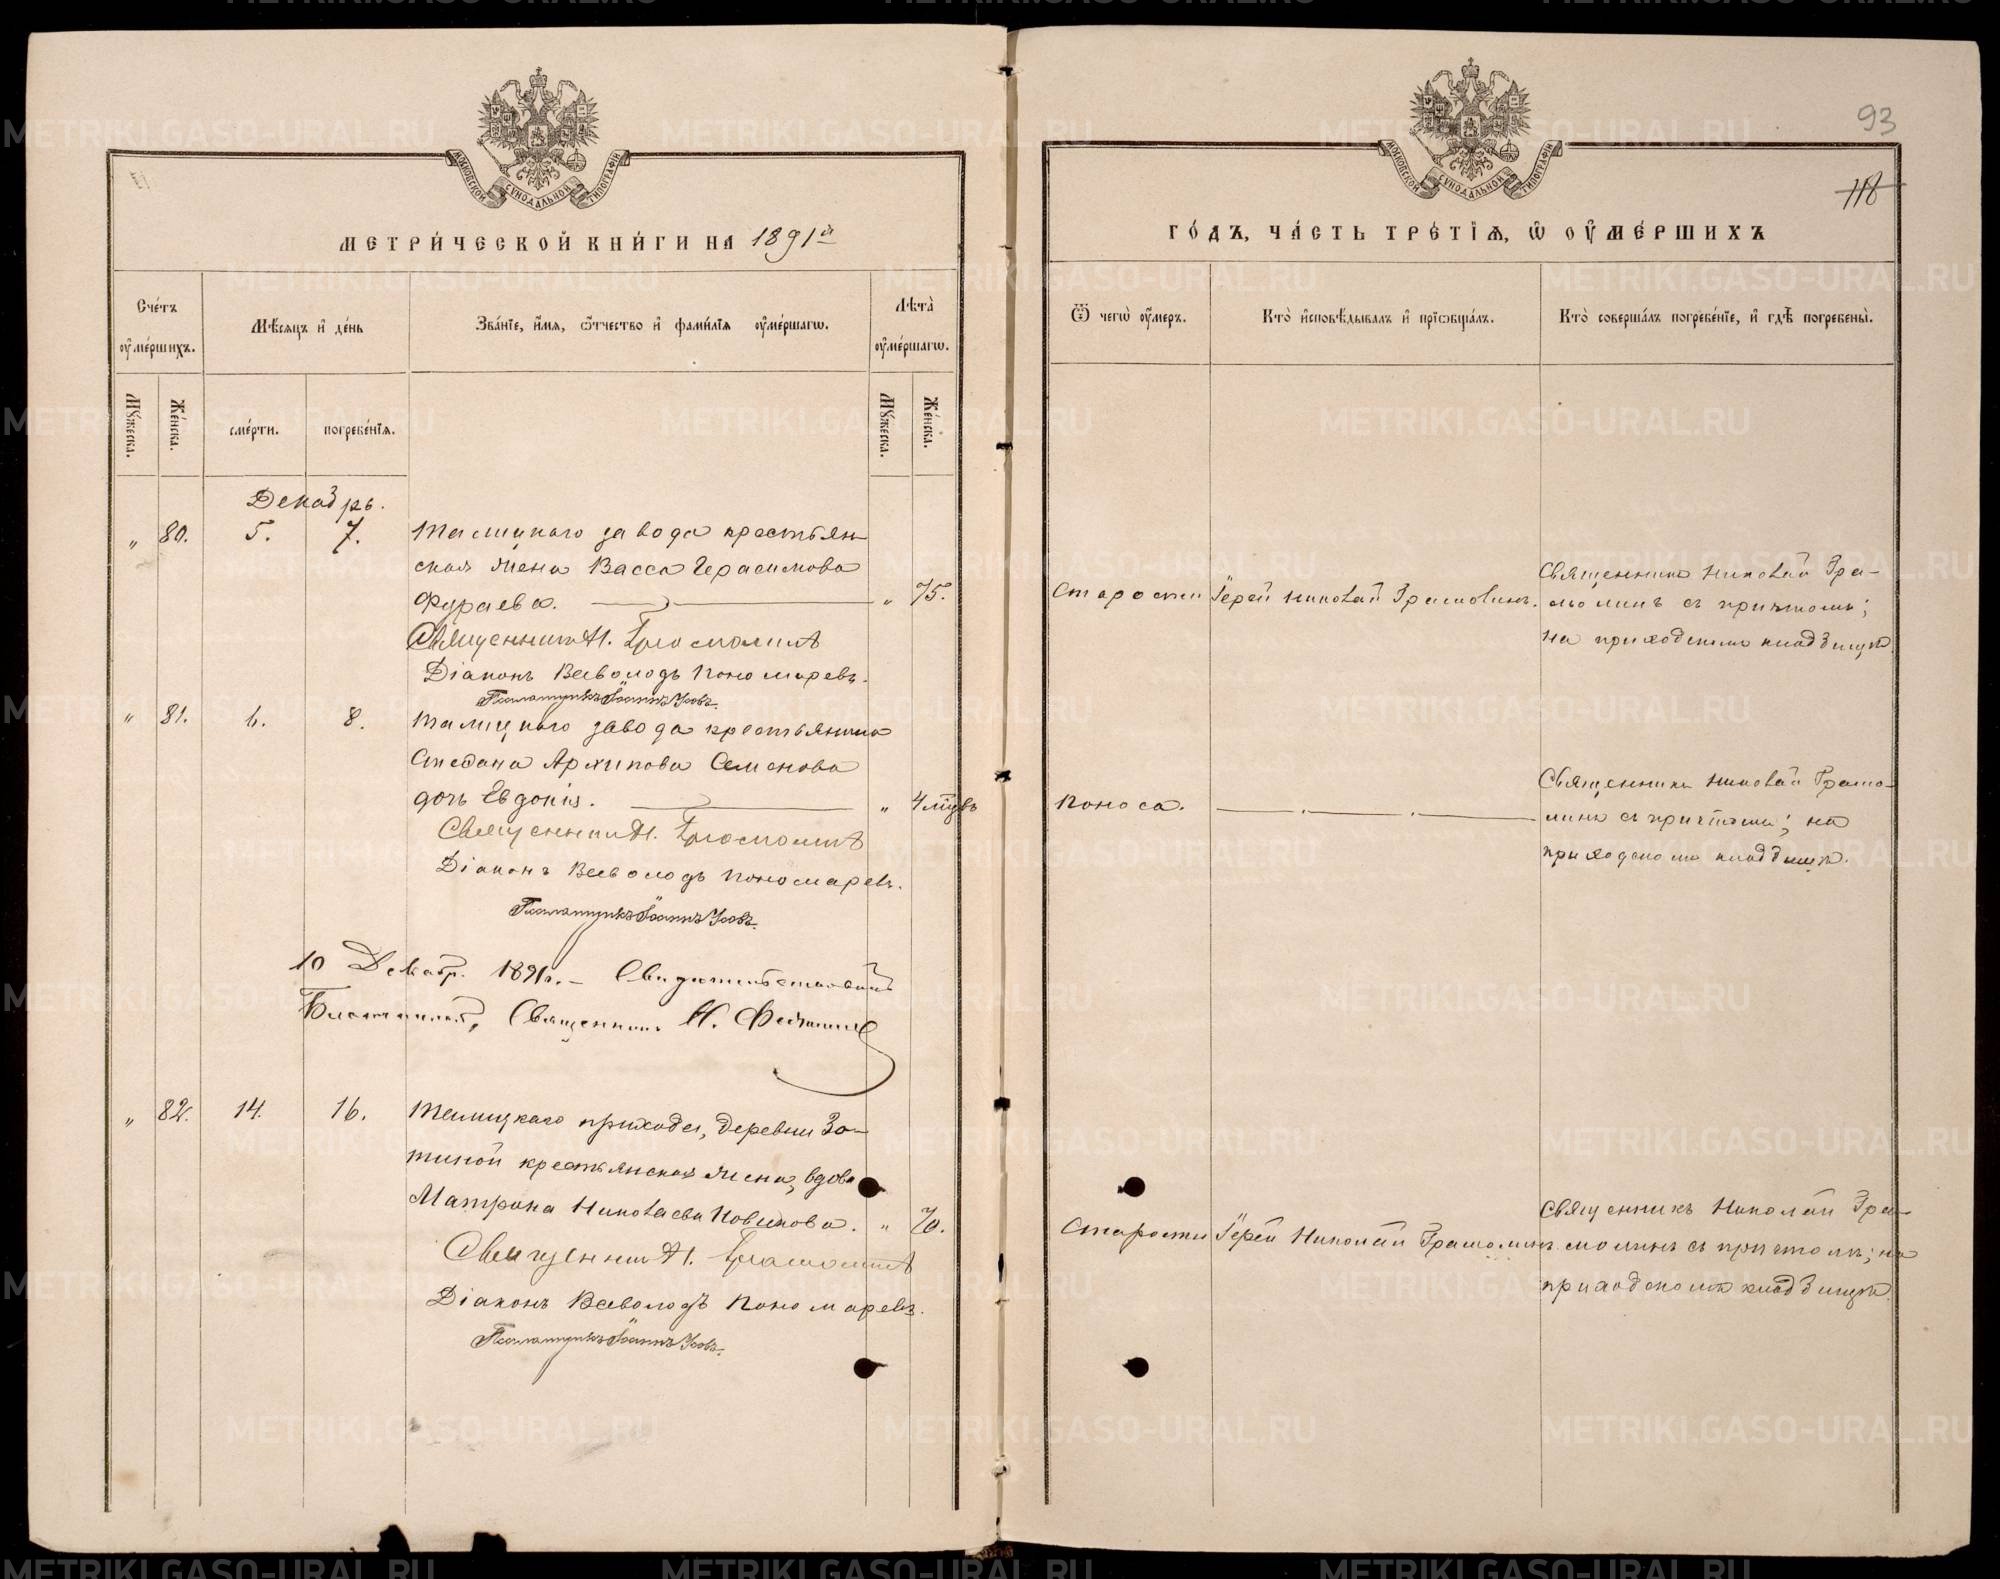 МЕТРИКИ.GASO-URAL.RU
МОСКОВСКОЙ СѴНОДАЛЬНОЙ ТИПОГРАФІИ
МЕТРИ́ЧЕСКОЙ КНИ́ГИ НА 1891й
Сче́тъ ᲂу҆ме́ршихъ.
Мѣ́сяцъ и҆ де́нь
Зва́нїе, и҆́мя, ѻ҆́тчество и҆ фами́лїя ᲂу҆ме́ршагѡ.
Лѣ́та ᲂу҆ме́ршагѡ.
Мꙋ́жеска.
Же́нска.
сме́рти.
погребе́нїя.
Мꙋ́жеска.
Же́нска.
Декабрь.
„ 80. 5. 7. Талицкаго завода крестьян
ская жена Васса Герасимова
Фураева. — „ 75.
Священникъ Н. Грамолинъ
Діаконъ Всеволодъ Пономаревъ.
Псаломщикъ Іоаннъ Усовъ.
„ 81. 6. 8. Талицкаго завода крестьянина
Стефана Архипова Семенова
дочь Евдокія. — „ 4 мѣцъ
Священникъ Н. Грамолинъ
Діаконъ Всеволодъ Пономаревъ.
Псаломщикъ Іоаннъ Усовъ.
10 Декабр. 1891г. – Свидѣтельствовалъ
Благочинный, Священникъ Н.
„ 82. 14. 16. Талицкаго прихода, деревни Зо-
тиной крестьянская жена, вдова
Матрона Николаева Новикова. „ 70.
Священникъ Н. Грамолинъ
Діаконъ Всеволодъ Пономаревъ.
Псаломщикъ Іоаннъ Усовъ.
93
118
МОСКОВСКОЙ СѴНОДАЛЬНОЙ ТИПОГРАФІИ
ГО́ДЪ, ЧА́СТЬ ТРЕ́ТЇѦ, Ѡ҆ ОУ҆МЕ́РШИХЪ
Ѿ чегѡ̀ ᲂу҆́меръ.
Кто̀ и҆сповѣ́дывалъ и҆ прїѡбща́лъ.
Кто̀ соверша́лъ погребе́нїе, и҆ гдѣ̀ погребены̀.
Старости
Іерей Николай Грамолинъ.
Священникъ Николай Гра-
молинъ съ причтомъ;
на приходскомъ кладбищѣ.
Поноса.
Священникъ Николай Грамо-
линъ съ причтомъ; на
приходскомъ кладбищѣ.
Старости
Іерей Николай Грамолинъ.
Священникъ Николай Гра-
молинъ съ причтомъ; на
приходскомъ кладбищѣ.